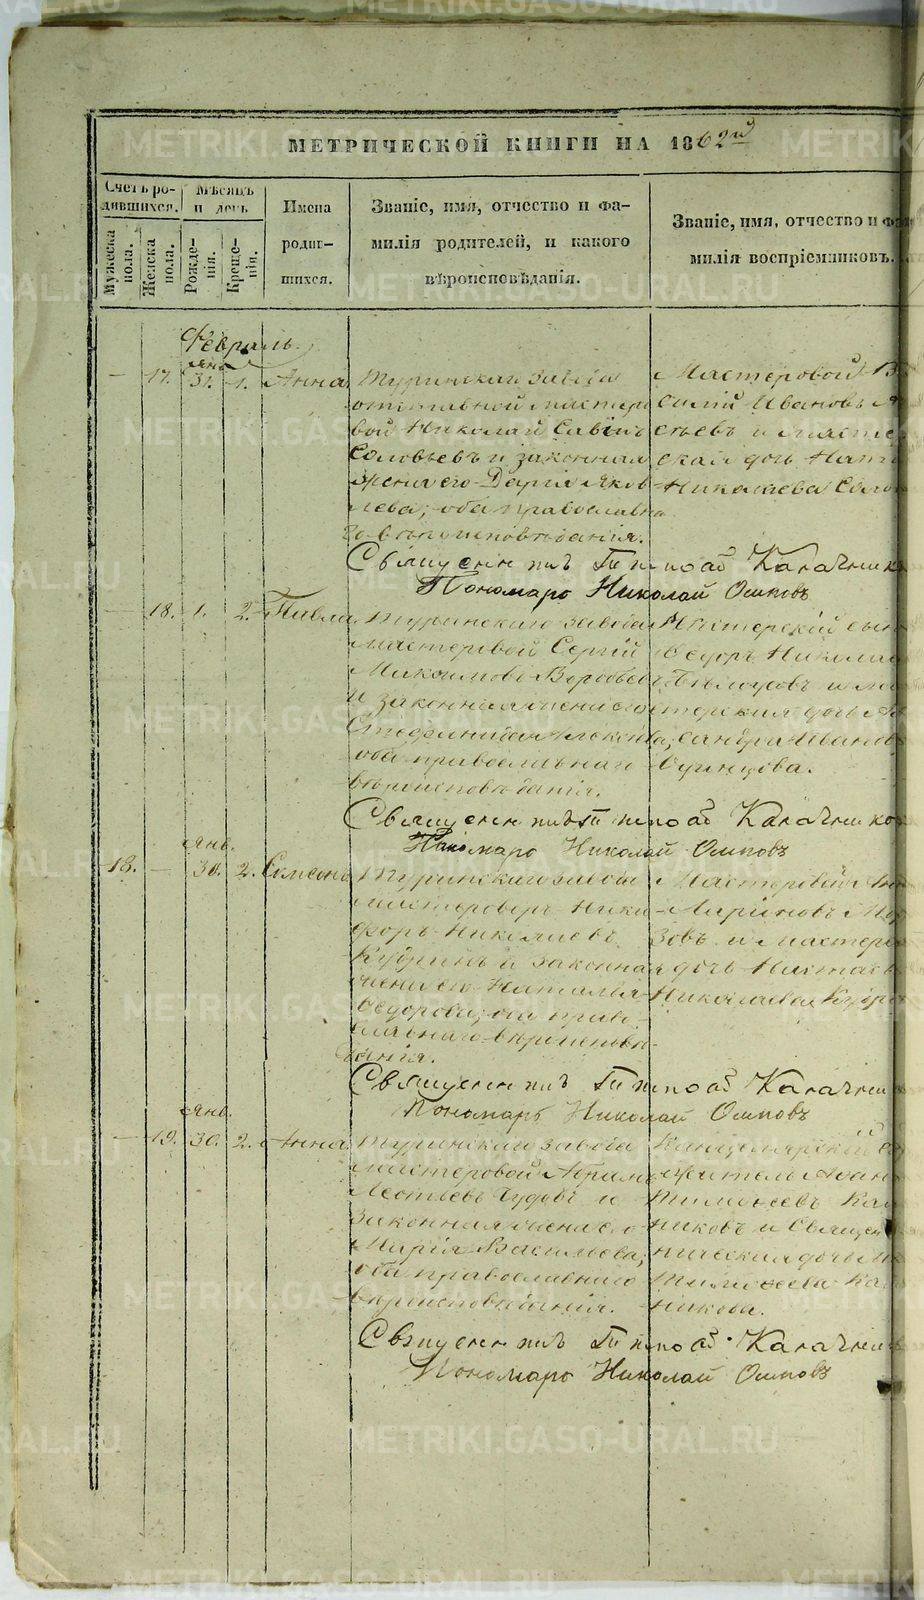 МЕТРИЧЕСКОЙ КНИГИ НА 1862й
Счетъ ро-
дившихся.
Мужеска
пола.
Женска
пола.
Мѣсяцъ
и день
Рожде-
нія.
Креще-
нія.
Имена
родив-
шихся.
Званіе, имя, отчество и фа-
милія родителей, и какого
вѣроисповѣданія.
Званіе, имя, отчество и фа-
милія воспріемниковъ.
Февраль.
янв.
17. 31. 1. Анна
Туринскаго завода
отставной мастеро
вой Николай Савинъ
Соловьевъ и законная
жена его Дарія Яков
лева; оба православна
го вѣроисповѣданія.
Мастеровой Ва
силій Ивановъ
и мастер
ская дочь
Николаева Соло
Священникъ Тимоѳей
Пономарь Николай Осиповъ
18. 1. 2. Павла
Туринскаго завода
мастеровой Сергій
Максимовъ Воробьев
и законная жена его
Стефанида Алексѣева;
оба православнаго
вѣроисповѣданія.
Мастерскій сынъ
Ѳедоръ Никола
и мас
терская дочь Але
сандра Иванова
Священникъ Тимоѳей
Пономарь Николай Осиповъ
янв.
18. 30. 2. Самсонъ
Туринскаго завода
мастероваръ Ники
форъ Николаевъ
Кудринъ и законная
жена его Наталья
Ѳедорова; оба право
славнаго вѣроисповѣ
данія.
Мастеровой
Ларіоновъ
зовъ и мастерс
дочь Настась
Николаева Кудри
Священникъ Тимоѳей
Пономарь Николай Осиповъ
янв.
19. 30. 2. Анна
Туринскаго завода
мастеровой Абрамъ
Леонтьевъ Чудовъ и
законная жена его
Марія Васильева;
оба православнаго
вѣроисповѣданія.
Канцелярскій слу
житель
Тимоѳеевъ Кала
никовъ и Священ
ническая дочь
Тимоѳеева Кала
никова.
Священникъ Тимоѳей
Пономарь Николай Осиповъ
METRIKI.GASO-URAL.RU